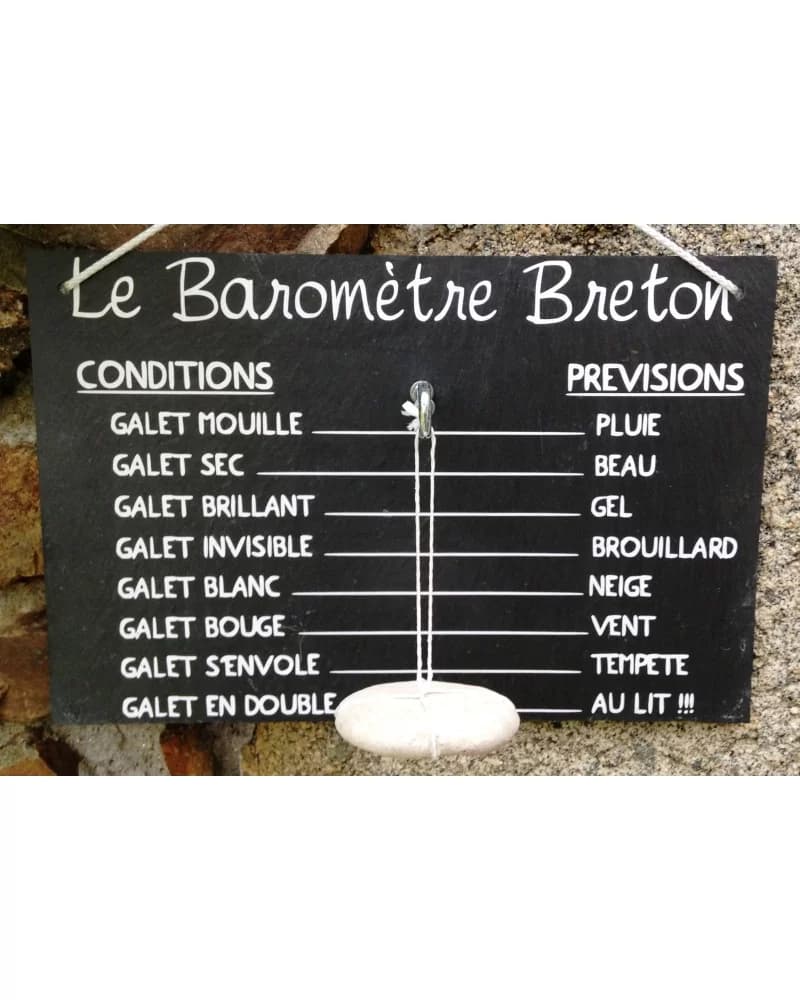 Le Baromètre Breton
CONDITIONS PREVISIONS
GALET MOUILLE PLUIE
GALET SEC BEAU
GALET BRILLANT GEL
GALET INVISIBLE BROUILLARD
GALET BLANC NEIGE
GALET BOUGE VENT
GALET S'ENVOLE TEMPETE
GALET EN DOUBLE AU LIT !!!